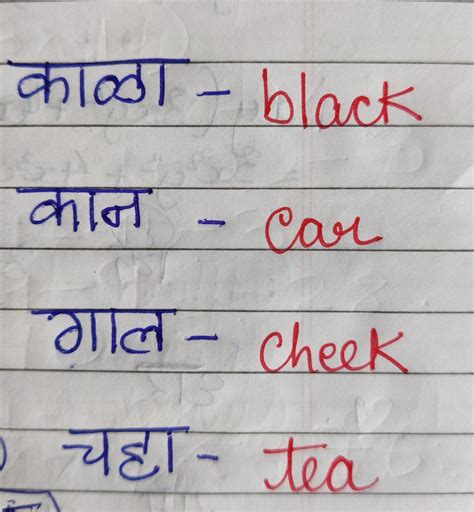 काळा - black
कान - car
गाल - cheek
चहा - tea